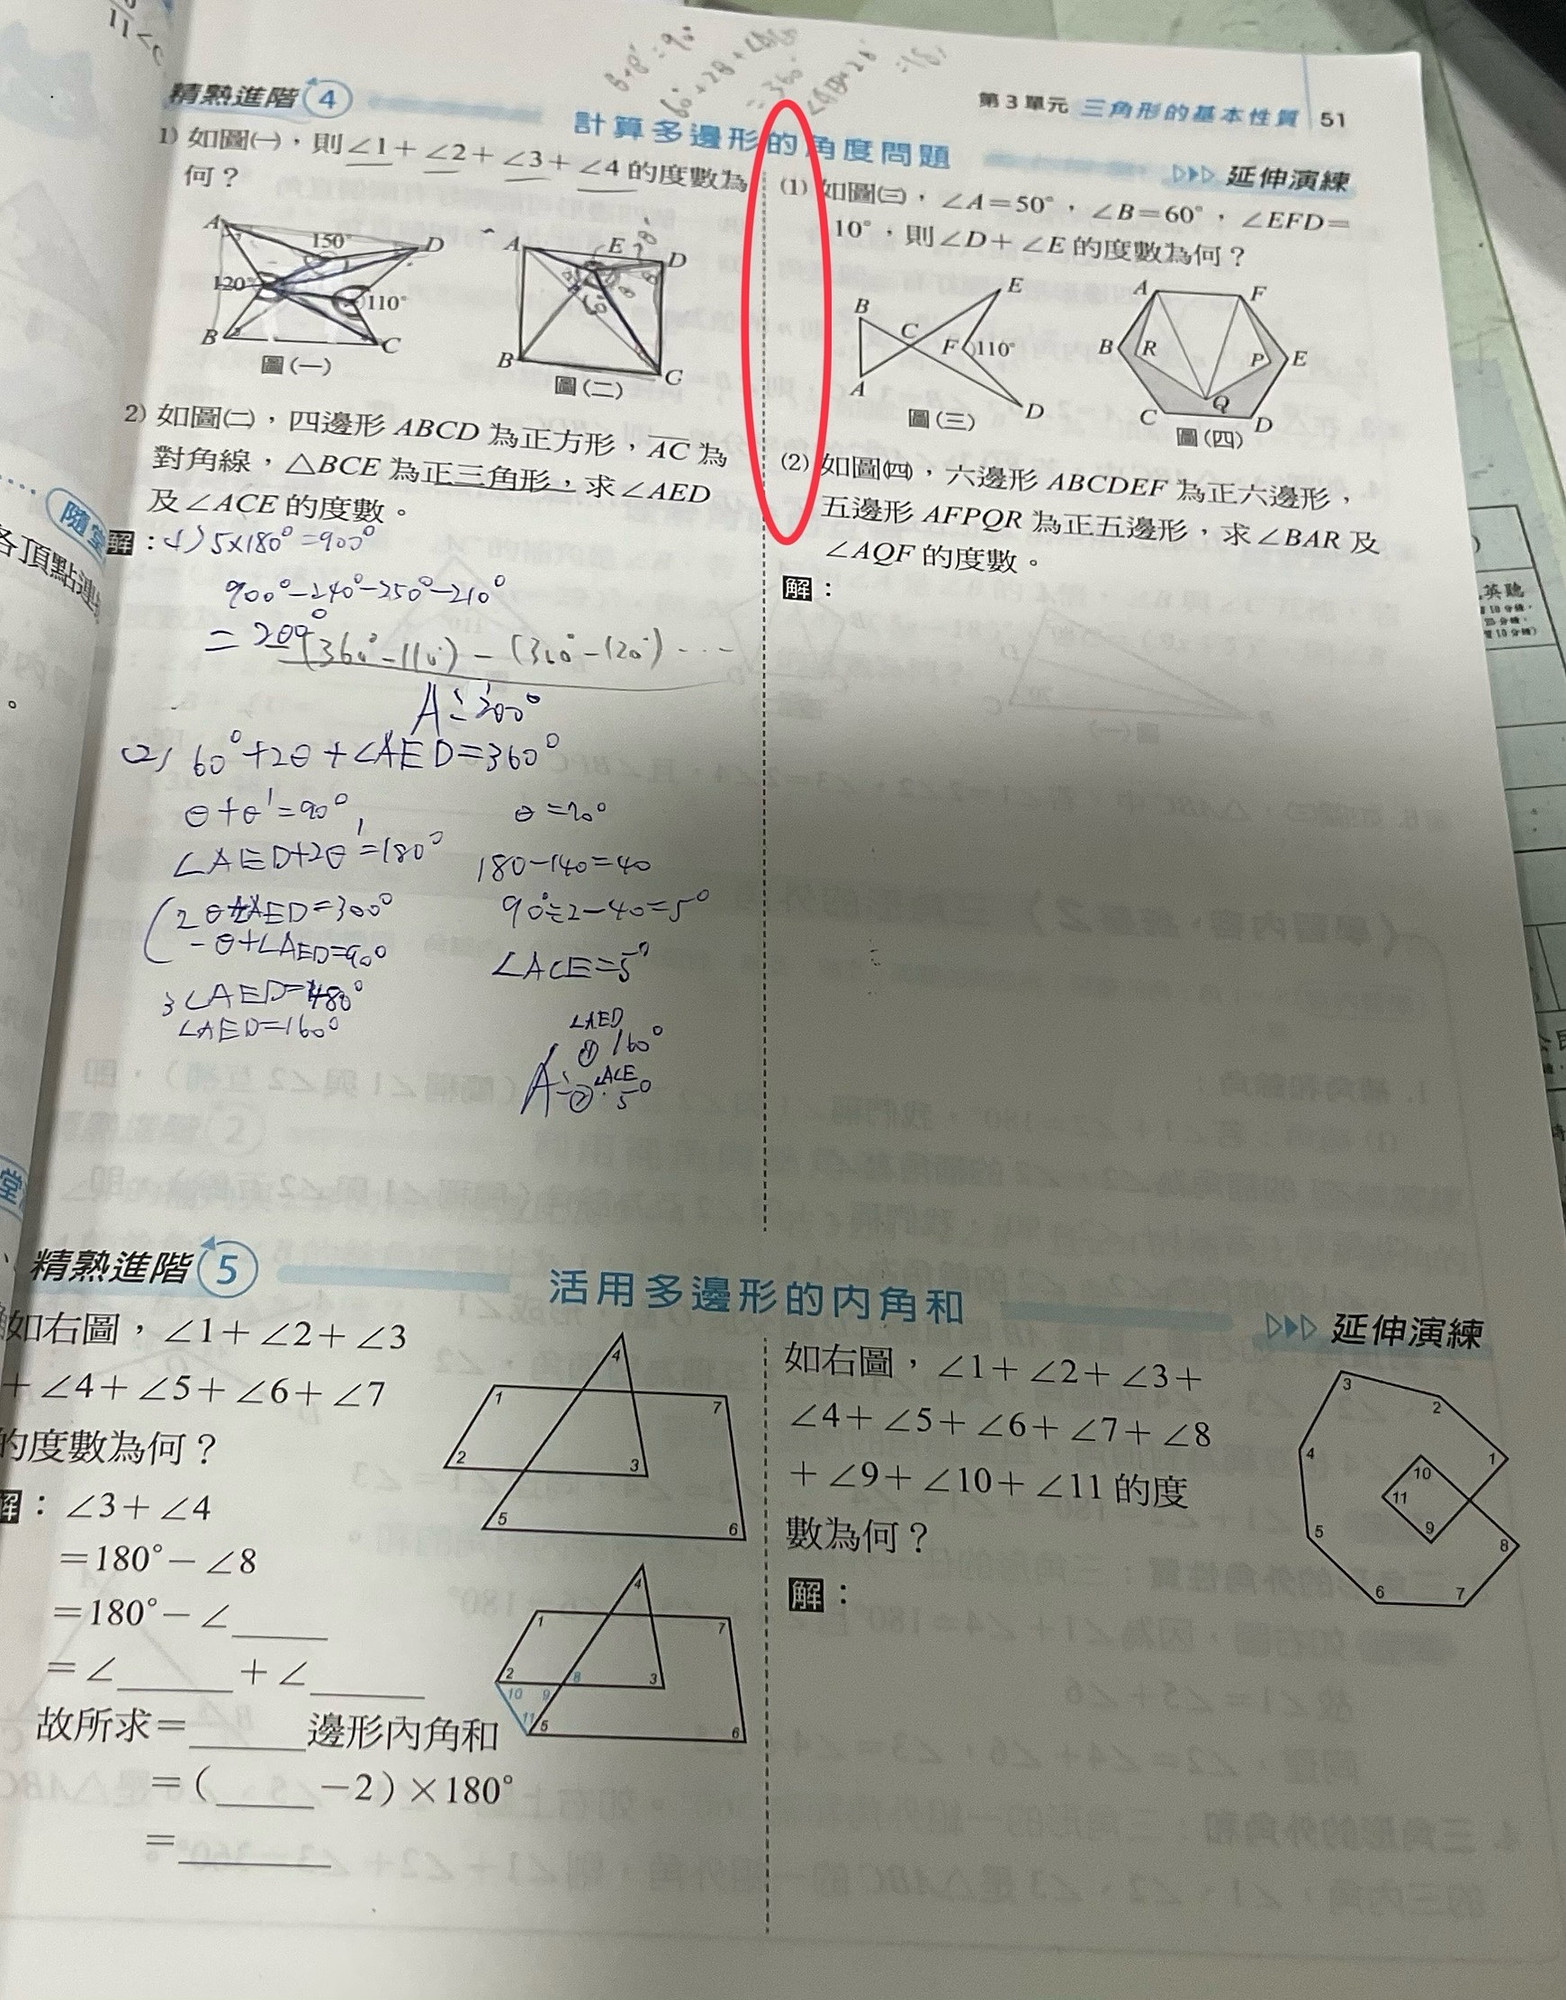 第3單元 三角形的基本性質 51
精熟進階 4
計算多邊形的角度問題
延伸演練
1) 如圖㈠，則∠1+∠2+∠3+∠4的度數為
何？
A
150°
D
120°
110°
B
C
圖(一)
A
E
D
B
C
圖(二)
2) 如圖㈡，四邊形ABCD為正方形，AC為
對角線，△BCE為正三角形，求∠AED
及∠ACE的度數。
解：(1) 5×180°=900°
900°-240°-250°-210°
=200°
(360°-110°)-(360°-120°)...
A：200°
(2) 60°+2θ+∠AED=360°
θ+θ'=90°
∠AED+2θ'=180°
2θ+∠AED=300°
-θ+∠AED=90°
3∠AED=480°
∠AED=160°
θ=70°
180-140=40
90°÷2-40=5°
∠ACE=5°
∠AED
① 160°
A：② ∠ACE 5°
(1) 如圖㈢，∠A=50°，∠B=60°，∠EFD=
10°，則∠D+∠E的度數為何？
E
B
C
F
110°
A
D
圖(三)
A
F
B
R
P
E
C
Q
D
圖(四)
(2) 如圖㈣，六邊形ABCDEF為正六邊形，
五邊形AFPQR為正五邊形，求∠BAR及
∠AQF的度數。
解：
精熟進階 5
活用多邊形的內角和
延伸演練
如右圖，∠1+∠2+∠3
+∠4+∠5+∠6+∠7
的度數為何？
解：∠3+∠4
=180°-∠8
=180°-∠____
=∠____+∠____
故所求=____邊形內角和
=(____-2)×180°
=____
4
1
7
2
3
5
6
4
1
7
2
8
3
10
9
11
5
6
如右圖，∠1+∠2+∠3+
∠4+∠5+∠6+∠7+∠8
+∠9+∠10+∠11的度
數為何？
解：
3
2
4
1
10
11
9
5
8
6
7
隨堂
各頂點連